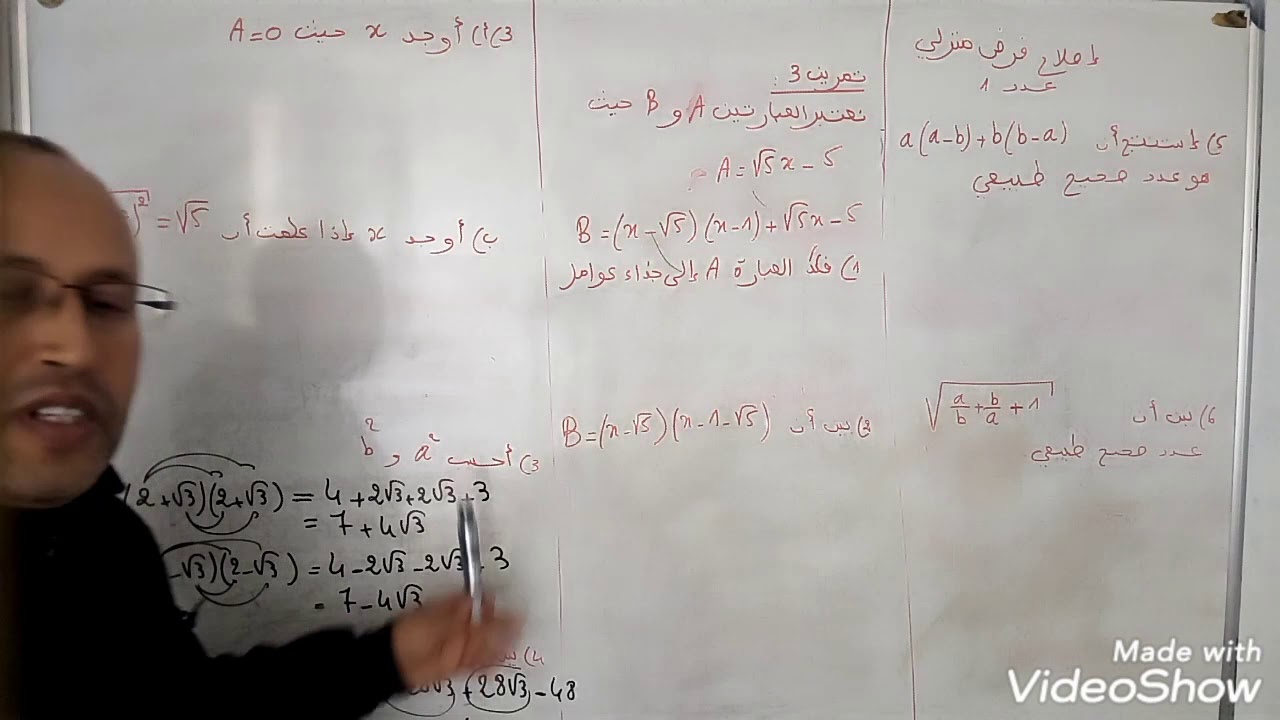 إصلاح فرض منزلي
عدد 1
5) إستنتج أن a(a-b)+b(b-a)
هو عدد صحيح طبيعي
6) بين أن √(a/b + b/a + 1)
عدد صحيح طبيعي
تمرين 3:
نعتبر العبارتين A و B حيث
A = √5x - 5
B = (x-√5)(x-1)+√5x-5
1) فكك العبارة A إلى جذاء عوامل
2) بين أن B = (x-√5)(x-1-√5)
3) أ) أوجد x حيث A=0
ب) أوجد x إذا علمت أن )² = √5
3) أحسب a² و b²
2+√3)(2+√3) = 4+2√3+2√3+3
= 7+4√3
-√3)(2-√3) = 4-2√3-2√3 3
= 7-4√3
4)
+28√3 - 48
Made with
VideoShow